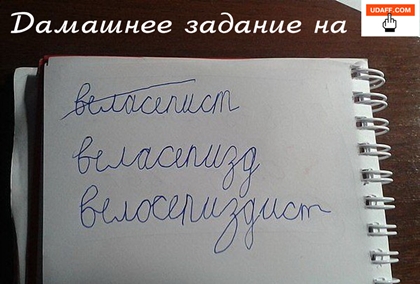 Дамашнее задание на
UDAFF.COM
веласепист
веласепизд
велосепиздист